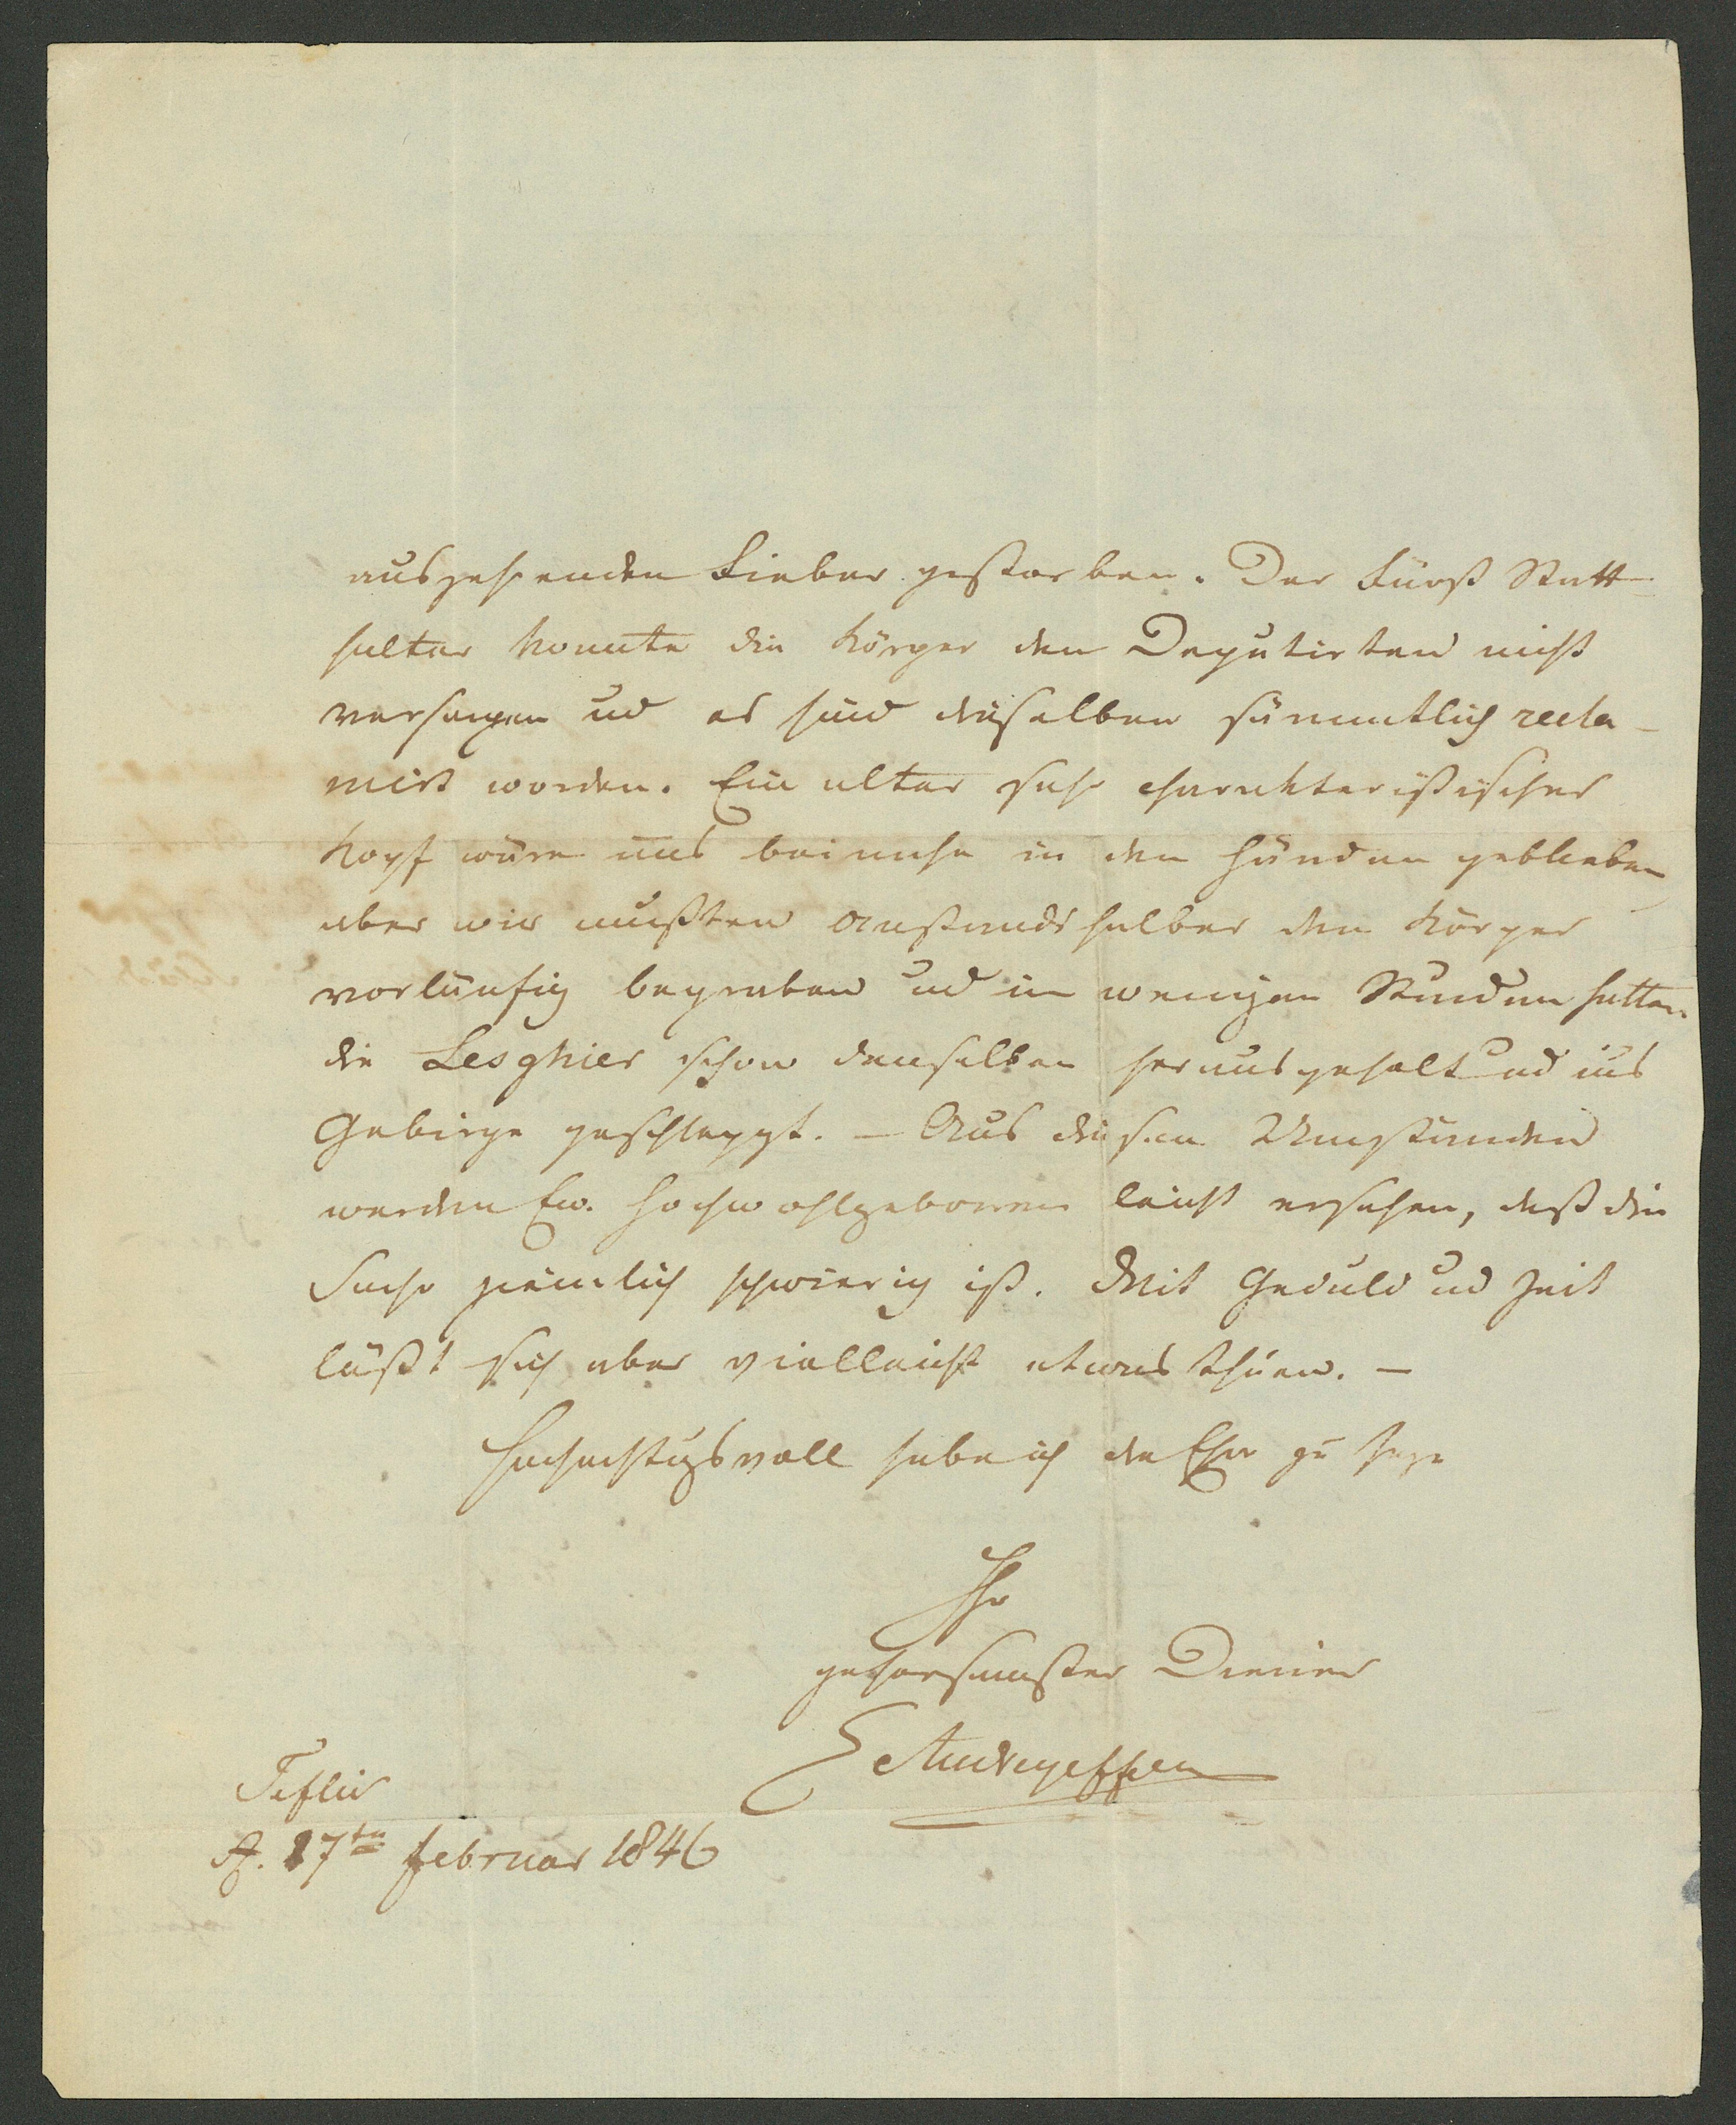 auszehrenden Fieber gestorben. Der Fürst Statt-
halter konnte die Körper den Deputirten nicht
versagen und es sind dieselben sämmtlich recla-
mirt worden. Ein alter sehr charakteristischer
Kopf wäre uns beinahe in den Händen geblieben
aber wir mußten Anstandshalber den Körper
vorläufig begraben und in wenigen Stunden hatten
die Lesghier schon denselben herausgeholt und ins
Gebirge geschleppt. — Aus diesen Umständen
werden Ew. Hochwohlgeboren leicht ersehen, daß die
Sache ziemlich schwierig ist. Mit Geduld und Zeit
läßt sich aber vielleicht etwas thuen. —
Hochachtungsvoll habe ich die Ehre zu seyn
Ihr
gehorsamster Diener
E Andreyeffsky
Tiflis
d. 17ten Februar 1846